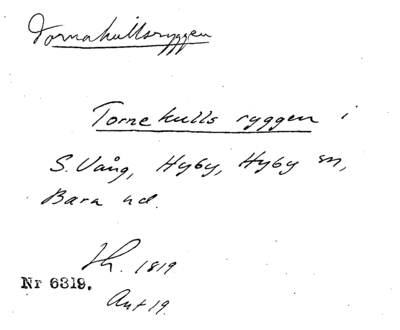 Tornakullsryggen
Tornekulls ryggen i
S. Vång, Hyby, Hyby sn,
Bara hd.
Lh. 1819
Nr 6319.
Ant 19.